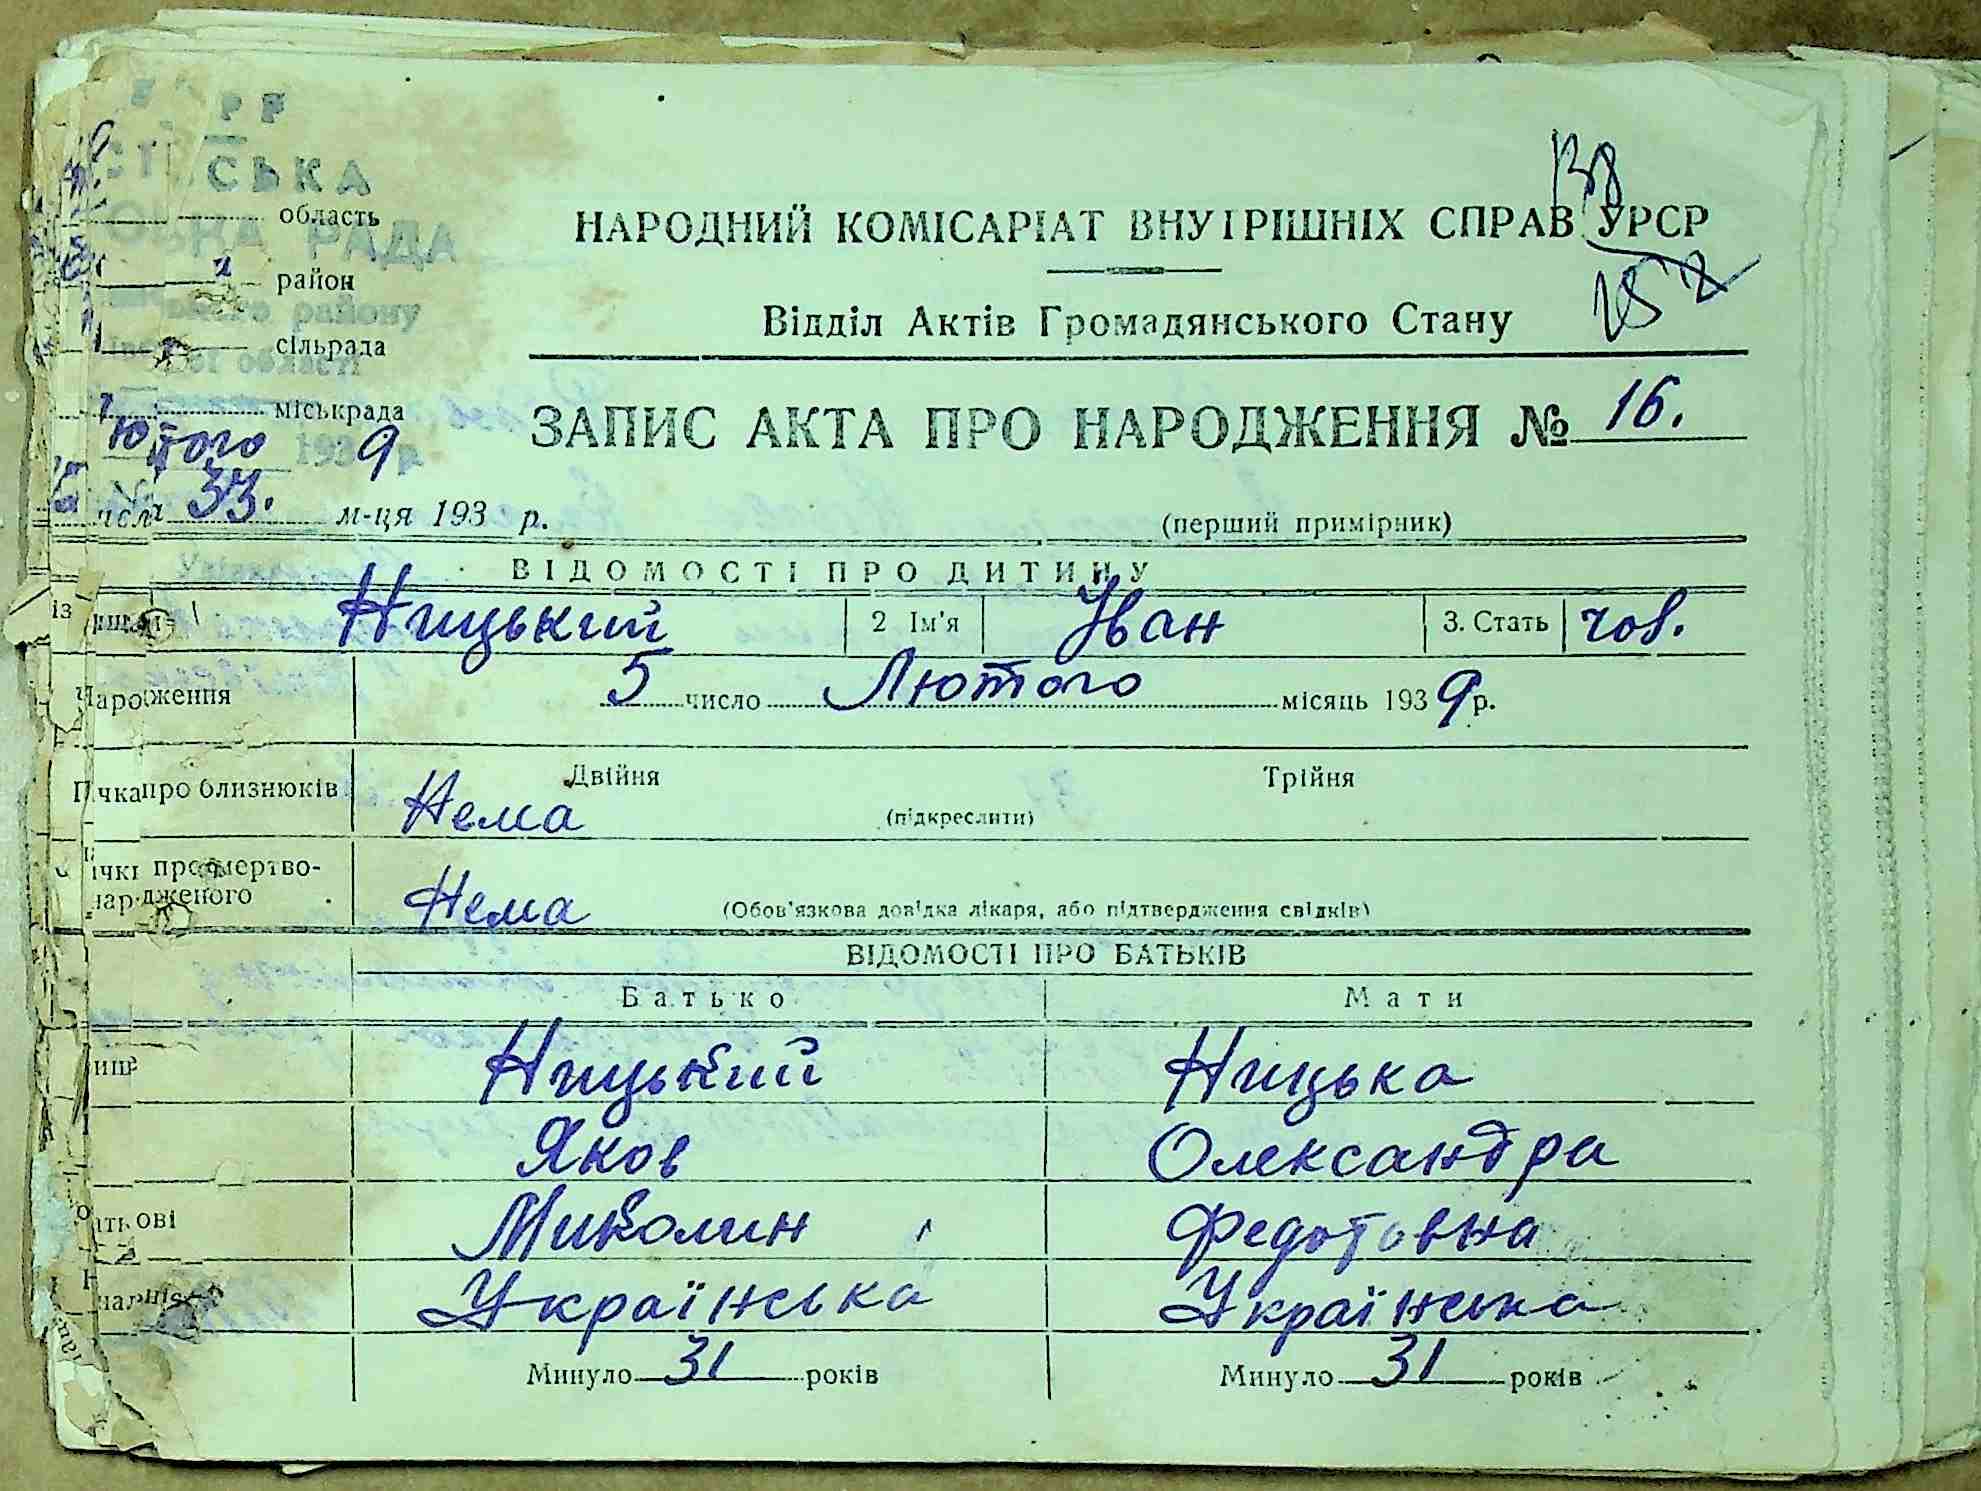 СЬКА
область
РАДА
район
району
сільрада
області
міськрада
лютого 1939 р.
№ 33.
м-ця 193 р.
138
НАРОДНИЙ КОМІСАРІАТ ВНУТРІШНІХ СПРАВ УРСР
152
Відділ Актів Громадянського Стану
ЗАПИС АКТА ПРО НАРОДЖЕННЯ № 16.
(перший примірник)
ВІДОМОСТІ ПРО ДИТИНУ
Ницький 2 Ім'я Іван 3. Стать чов.
Народження 5 число Лютого місяць 1939 р.
про близнюків Нема Двійня Трійня
(підкреслити)
про мертво-
народженого Нема (Обов'язкова довідка лікаря, або підтвердження свідків)
ВІДОМОСТІ ПРО БАТЬКІВ
Батько Мати
Ницький Ницька
Яков Олександра
Миколин Федотовна
Українська Українська
Минуло 31 років Минуло 31 років